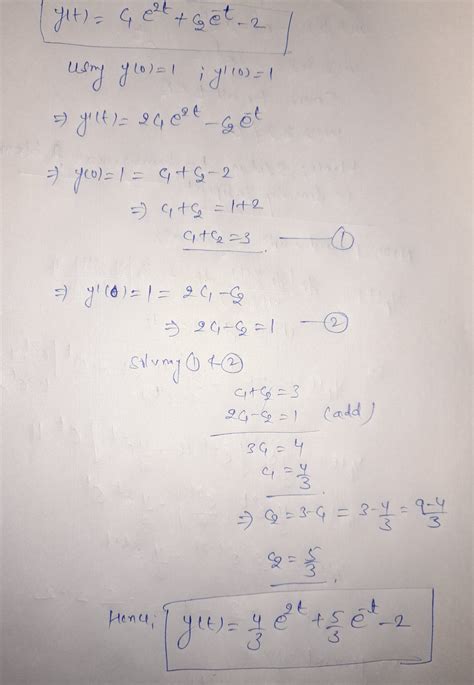 y(t) = C₁ e^{2t} + C₂ e^{-t} - 2
using y(0)=1 ; y'(0)=1
⇒ y'(t) = 2C₁ e^{2t} - C₂ e^{-t}
⇒ y(0)=1 = C₁+C₂-2
⇒ C₁+C₂ = 1+2
C₁+C₂=3 ①
⇒ y'(0)=1 = 2C₁-C₂
⇒ 2C₁-C₂=1 ②
Solving ① & ②
C₁+C₂=3
2C₁-C₂=1 (add)
3C₁ = 4
C₁ = 4/3
⇒ C₂ = 3-C₁ = 3-4/3 = 9-4/3
C₂ = 5/3
Hence, y(t) = 4/3 e^{2t} + 5/3 e^{-t} - 2